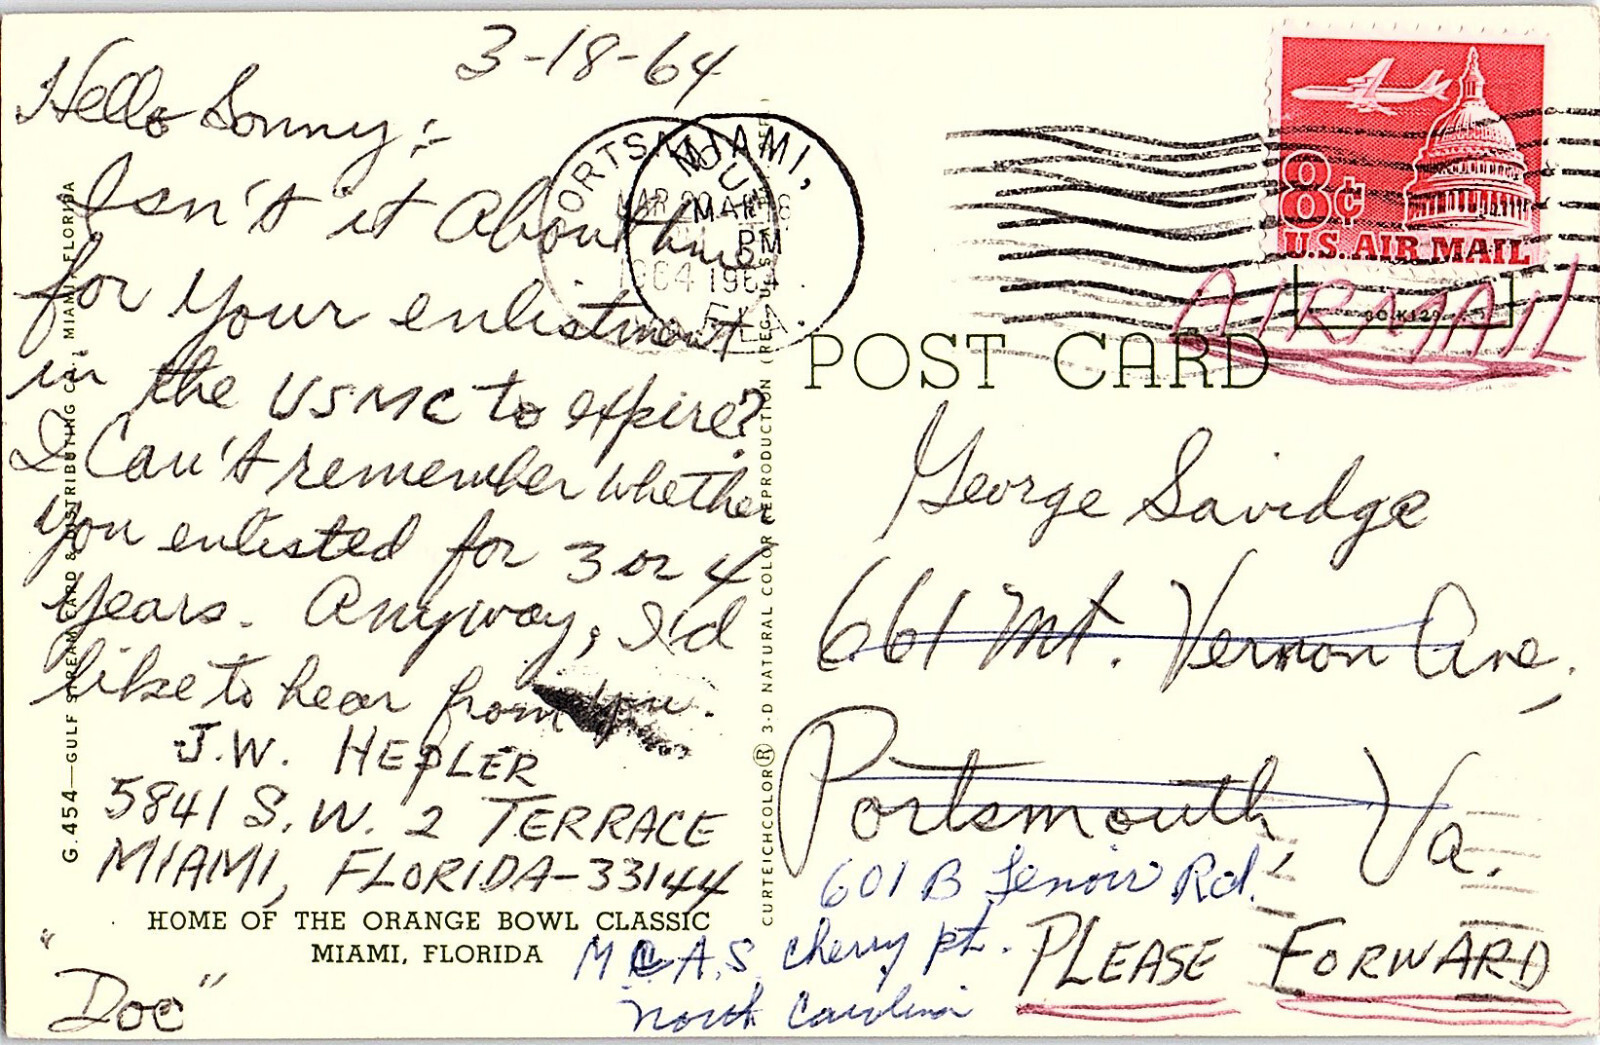 3-18-64
Hello Sonny:-
Isn't it about time
for your enlistment
in the USMC to expire?
I Can't remember whether
you enlisted for 3 or 4
years. Anyway, I'd
like to hear from you.
J.W. HEPLER
5841 S.W. 2 TERRACE
MIAMI, FLORIDA-33144
HOME OF THE ORANGE BOWL CLASSIC
MIAMI, FLORIDA
"Doc"
G.454—GULF STREAM CARD & DISTRIBUTING CO., MIAMI, FLORIDA
CURTEICHCOLOR® 3-D NATURAL COLOR REPRODUCTION (REG. U.S.
PORTSMOUTH
MAR 20
1964
MIAMI,
MAR 18
PM
1964
FLA.
8¢
U.S. AIR MAIL
AIRMAIL
POST CARD
George Savidge
661 Mt. Vernon Ave,
Portsmouth Va.
601 B Lenoir Rd.
MCAS Cherry pt.
North Carolina
PLEASE FORWARD